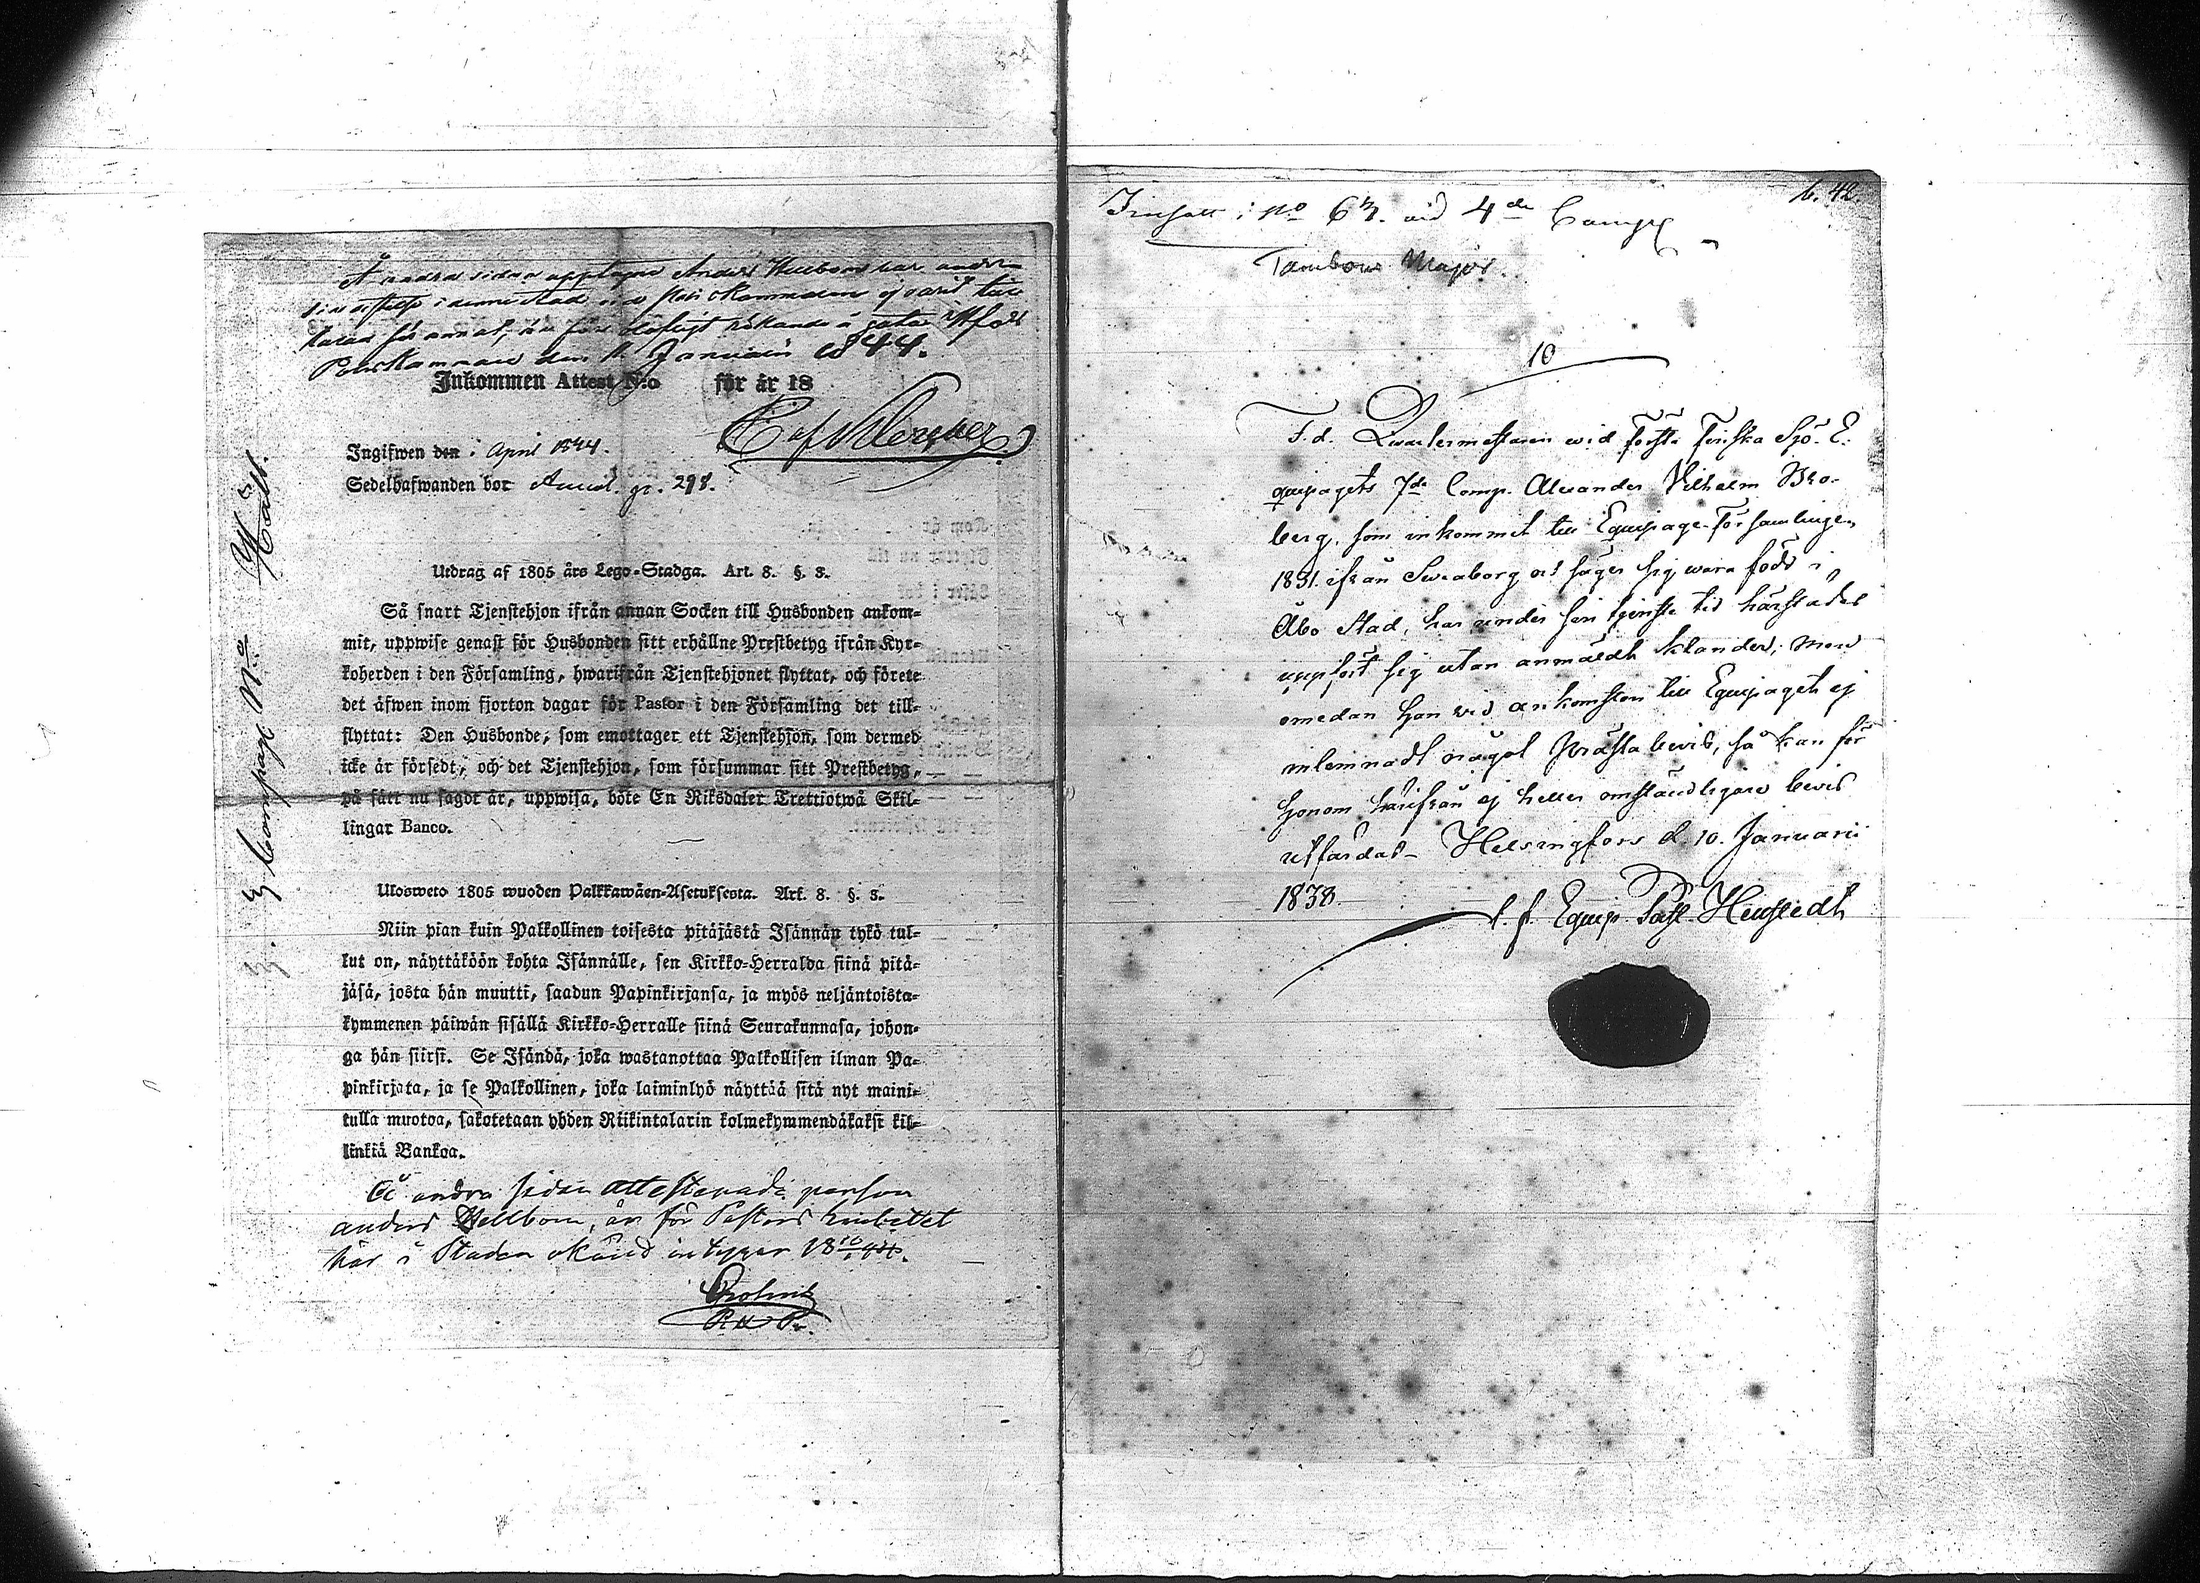 Å andra sidan upptagne Anders Hellbom har under
sin vistelse i denne stad
Poliskammare den 11 Januarii 1844.
Inkommen Attest N:o för år 18
Ingifwen den i April 1844.
Sedelhafwanden bor gr. 298.
Utdrag af 1805 års Lego-Stadga. Art. 8. §. 3.
Så snart Tjenstehjon ifrån annan Socken till Husbonden ankom-
mit, uppwise genast för Husbonden sitt erhållne Prestbetyg ifrån Kyr-
koherden i den Församling, hwarifrån Tjenstehjonet flyttat, och förete
det äfwen inom fjorton dagar för Pastor i den Församling det till-
flyttat: Den Husbonde, som emottager ett Tjenstehjon, som dermed
icke är försedt, och det Tjenstehjon, som försummar sitt Prestbetyg,
på sätt nu sagdt är, uppwisa, böte En Riksdaler Trettiotwå Skil-
lingar Banco.
Ulosweto 1805 wuoden Palkkawäen-Asetuksesta. Art. 8. §. 3.
Niin pian kuin Palkollinen toisesta pitäjästä Isännän tykö tul-
lut on, näyttäköön kohta Isännälle, sen Kirkko-Herralda siinä pitä-
jäsä, josta hän muutti, saadun Papinkirjansa, ja myös neljäntoista-
kymmenen päiwän sisällä Kirkko-Herralle siinä Seurakunnasa, johon-
ga hän siirsi. Se Isändä, joka wastanottaa Palkollisen ilman Pa-
pinkirjata, ja se Palkollinen, joka laiminlyö näyttää sitä nyt maini-
tulla muotoa, sakotetaan yhden Riikintalarin kolmekymmendäkaksi kil-
linkiä Bankoa.
Å andra sidan attesterade person
anders Hellbom, är för Pastors Embetet
här i Staden okänd
Compagn. N:o
b. 42.
i No 63. vid 4de Comp.
Tambour Major.
10
F.d. Quartermästaren wid Första Finska Sjö-E-
quipagets 7de Comp. Alexander Vilhelm Bro-
berg, som inkommit till Equipage-Församlingen
1831 ifrån Sweaborg och säger sig wara född i
Åbo Stad, har under sin tjenste tid härstädes
uppfört sig utan anmäldt klander; men
emedan han wid ankomsten till Equipaget ej
inlemnadt något Prästabevis, så kan för
honom härifrån ej heller omständligare bevis
utfärdas. Helsingfors d. 10. Januarii
1838